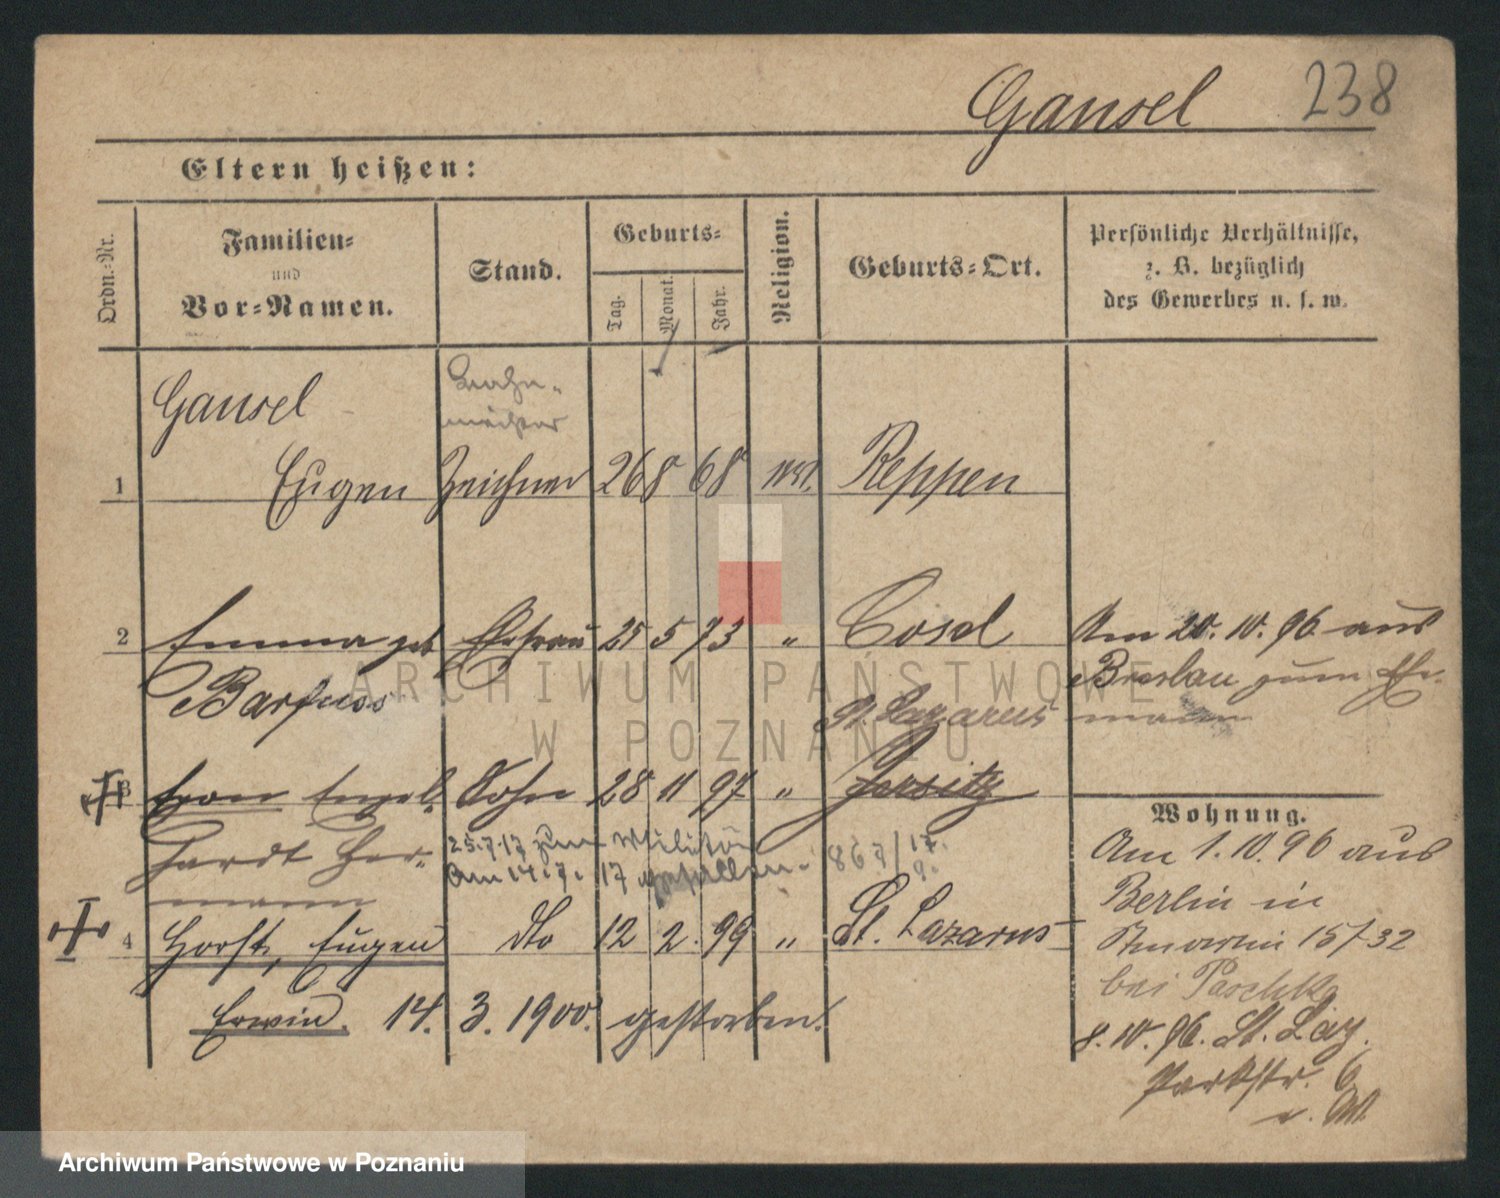 Gansel 238
Eltern heißen:
Ordn.=Nr.
Familien=
und
Vor=Namen.
Stand.
Geburts=
Tag.
Monat.
Jahr.
Religion.
Geburts=Ort.
Persönliche Verhältnisse,
z. B. bezüglich
des Gewerbes u. s. w.
Gansel
1 Eugen Zeichner 26 8 68 Reppen
2 Emma geb Ehefrau 25 5 73 " Cosel
Barfuss
Am 20. 10. 96 aus
Breslau zum Ehe-
mann
St. Lazarus
3 Engel- Sohn 28 11 97 " Jersitz
hardt Her-
mann
25.7.17 zum Militär
Am 14. 9. 17 gefallen. 867/17.
4 Horst, Eugen dto 12 2. 99 " St. Lazarus
Erwin. 14. 3. 1900. gestorben.
Wohnung.
Am 1. 10. 96 aus
Berlin in
157 32
bei Paschke
8. 10. 96. St. Laz.
Parkstr. 6
ARCHIWUM PAŃSTWOWE
W POZNANIU
Archiwum Państwowe w Poznaniu